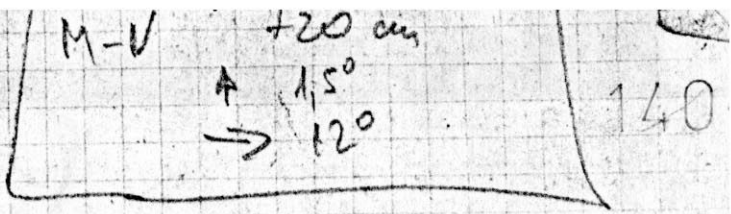 M-V +20 cm
↑ 1,5°
→ 12°
140